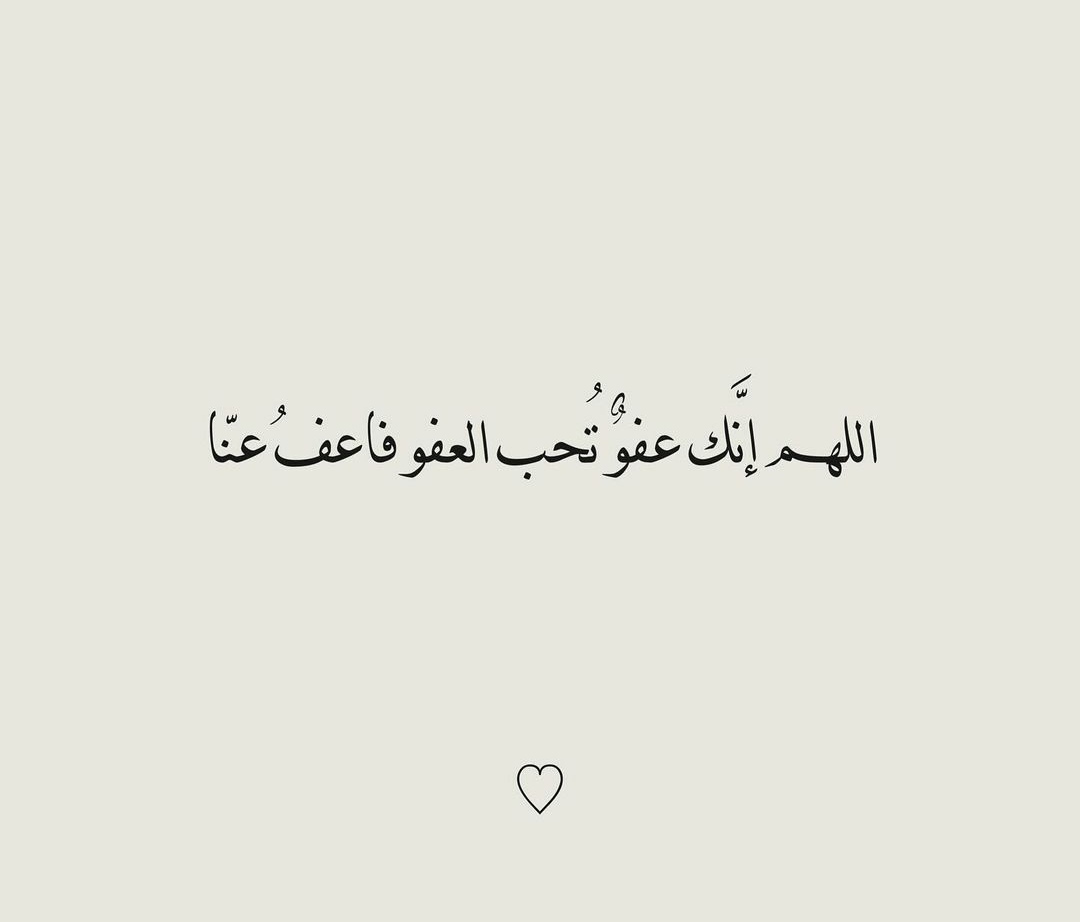 اللهم إنَّك عفوٌ تُحب العفو فاعفُ عنّا